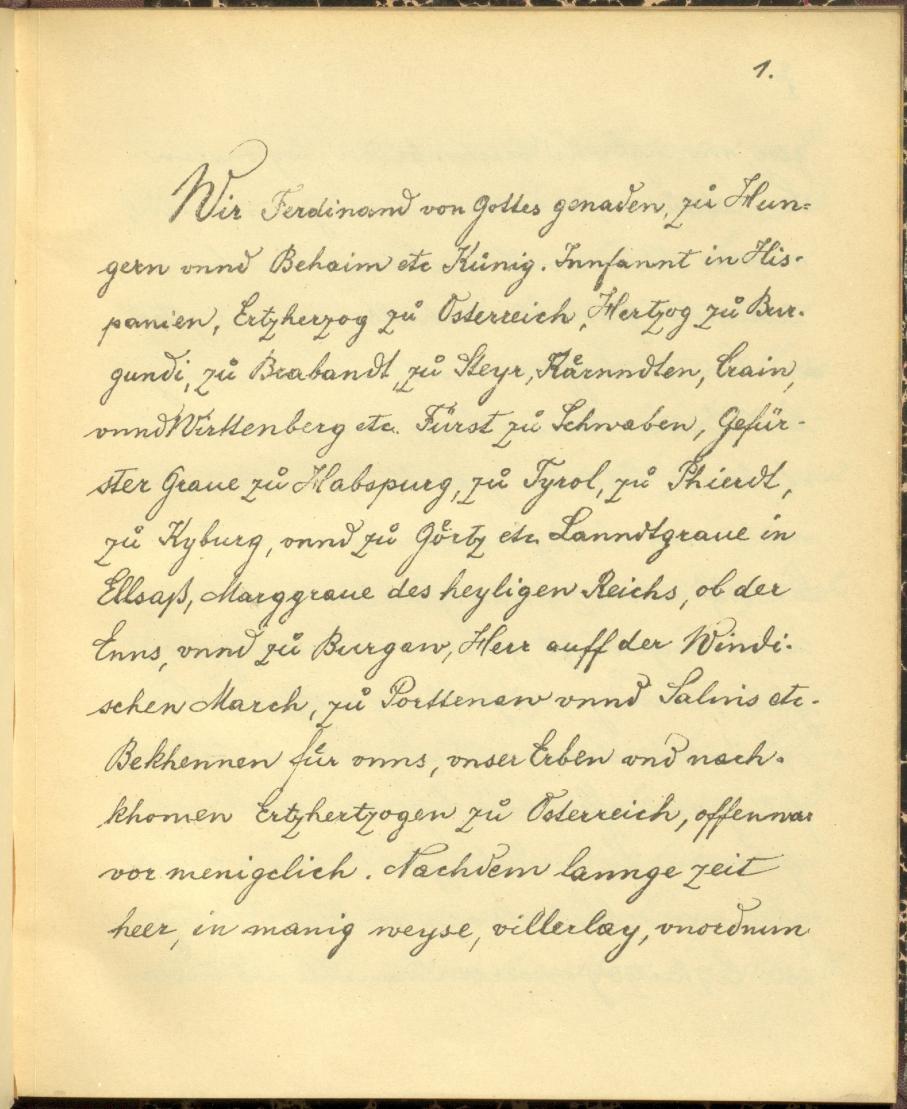 1.
Wir Ferdinand von Gottes genaden, zů Hun=
gern vnnd Behaim etc Künig. Innfannt in His-
panien, Ertzherzog zů Osterreich, Hertzog zů Bur-
gundi, zů Brabandt, zů Steyr, Kärnndten, Crain,
vnnd Wirttenberg etc. Fürst zů Schwaben, Gefür-
ster Graue zů Habspurg, zů Tyrol, zů Phierdt,
zů Kyburg, vnnd zů Görtz etc. Lanndtgraue in
Ellsaß, Marggraue des heyligen Reichs, ob der
Enns, vnnd zů Burgaw, Herr auff der Windi-
schen March, zů Porttenaw vnnd Salins etc.
Bekhennen für vnns, vnser Erben vnd nach-
khomen Ertzhertzogen zů Osterreich, offennwar
vor menigclich. Nachdem lannge zeit
heer, in manig weyse, villerlay, vnordnun